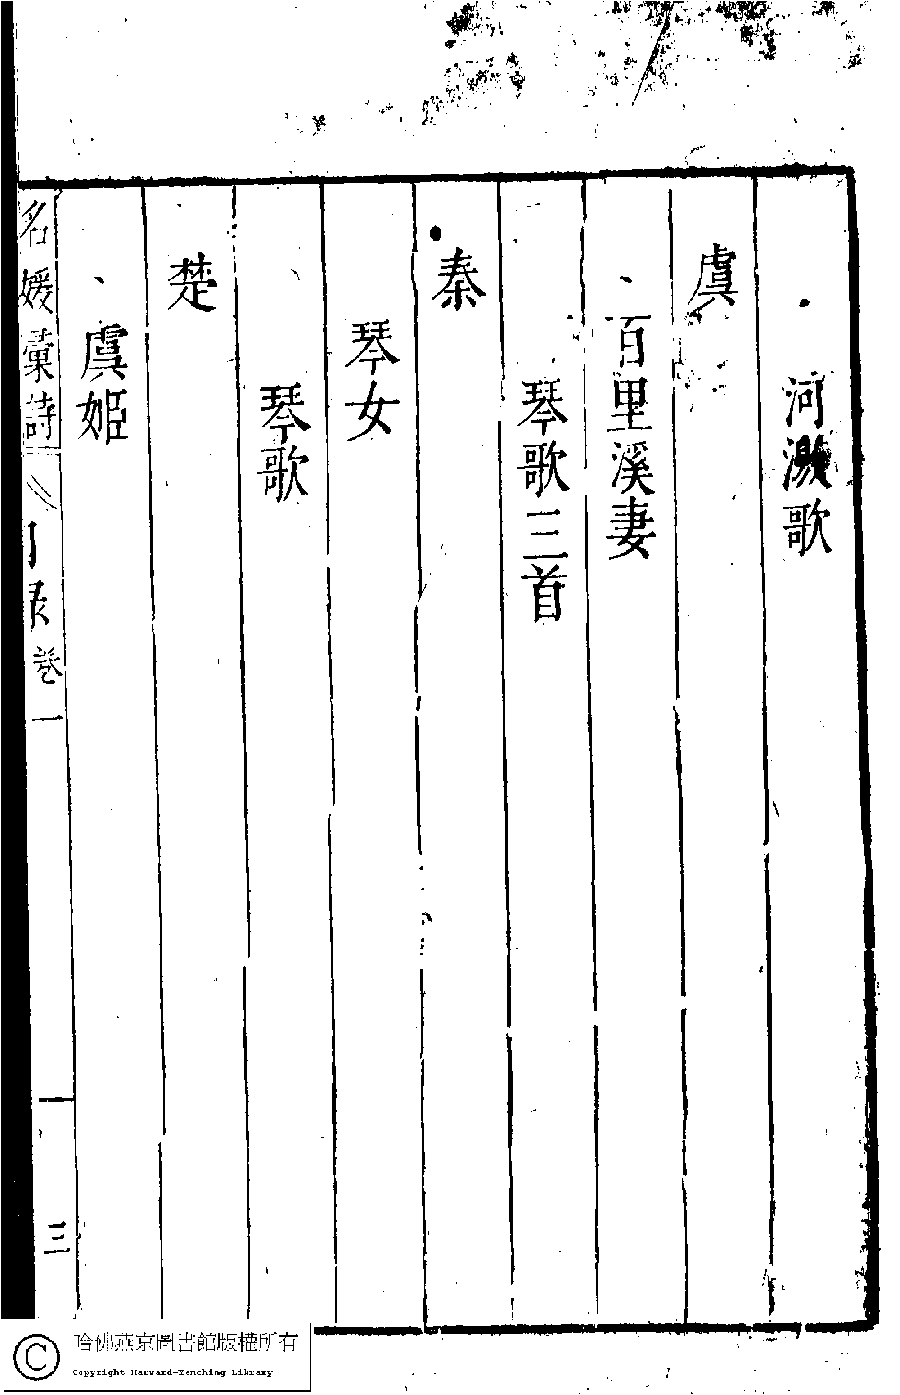 河激歌
虞
百里溪妻
琴歌三首
秦
琴女
琴歌
楚
虞姬
名媛彙詩 目录 卷一 三
哈佛燕京圖書館版權所有
Copyright Harvard-Yenching Library